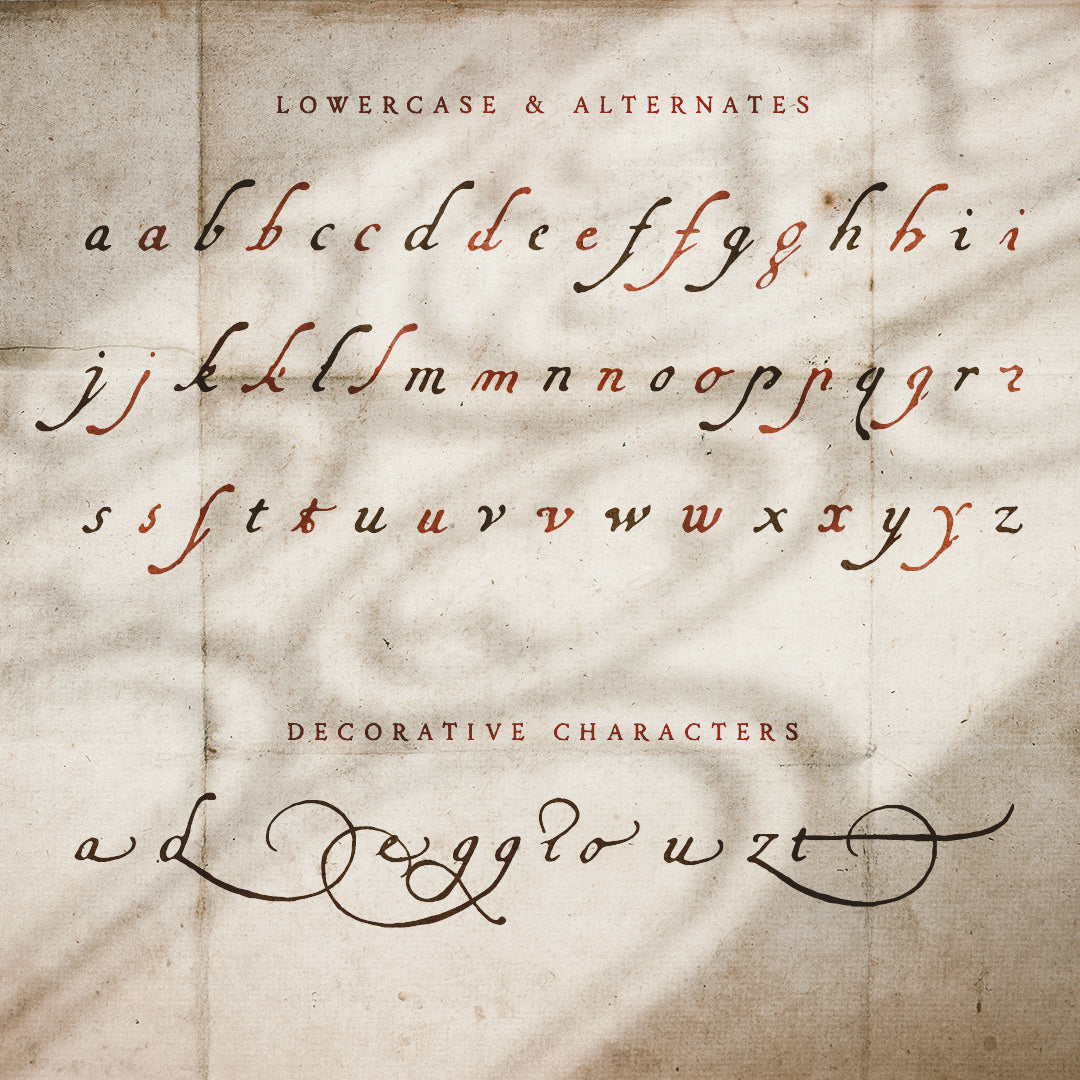 LOWERCASE & ALTERNATES
a a b b c c d d e e f f g g h h i i
j j k k l l m m n n o o p p q q r r
s s ſ t t u u v v w w x x y y z
DECORATIVE CHARACTERS
a d e g g l o u z t